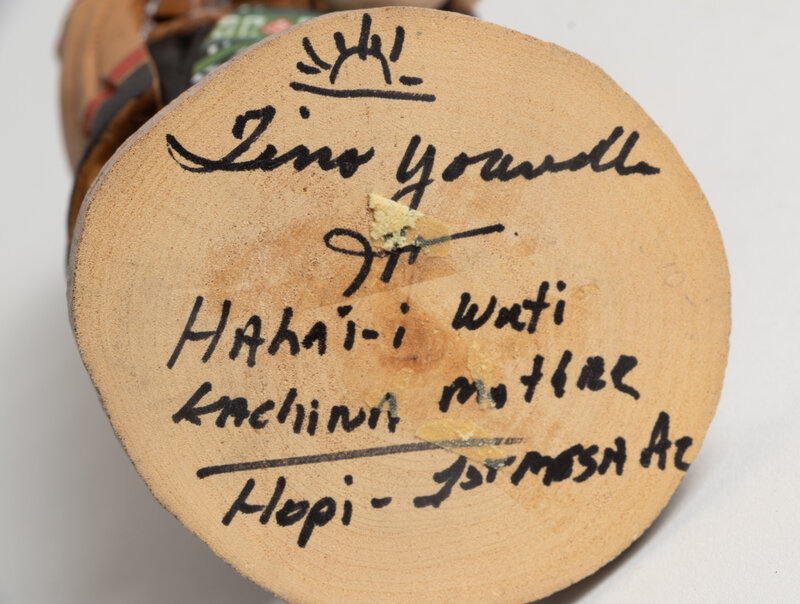 Tino Youvella
Jr
HAhAi-i Wuti
KAchinA MotHeR
Hopi - 1st MESA Az